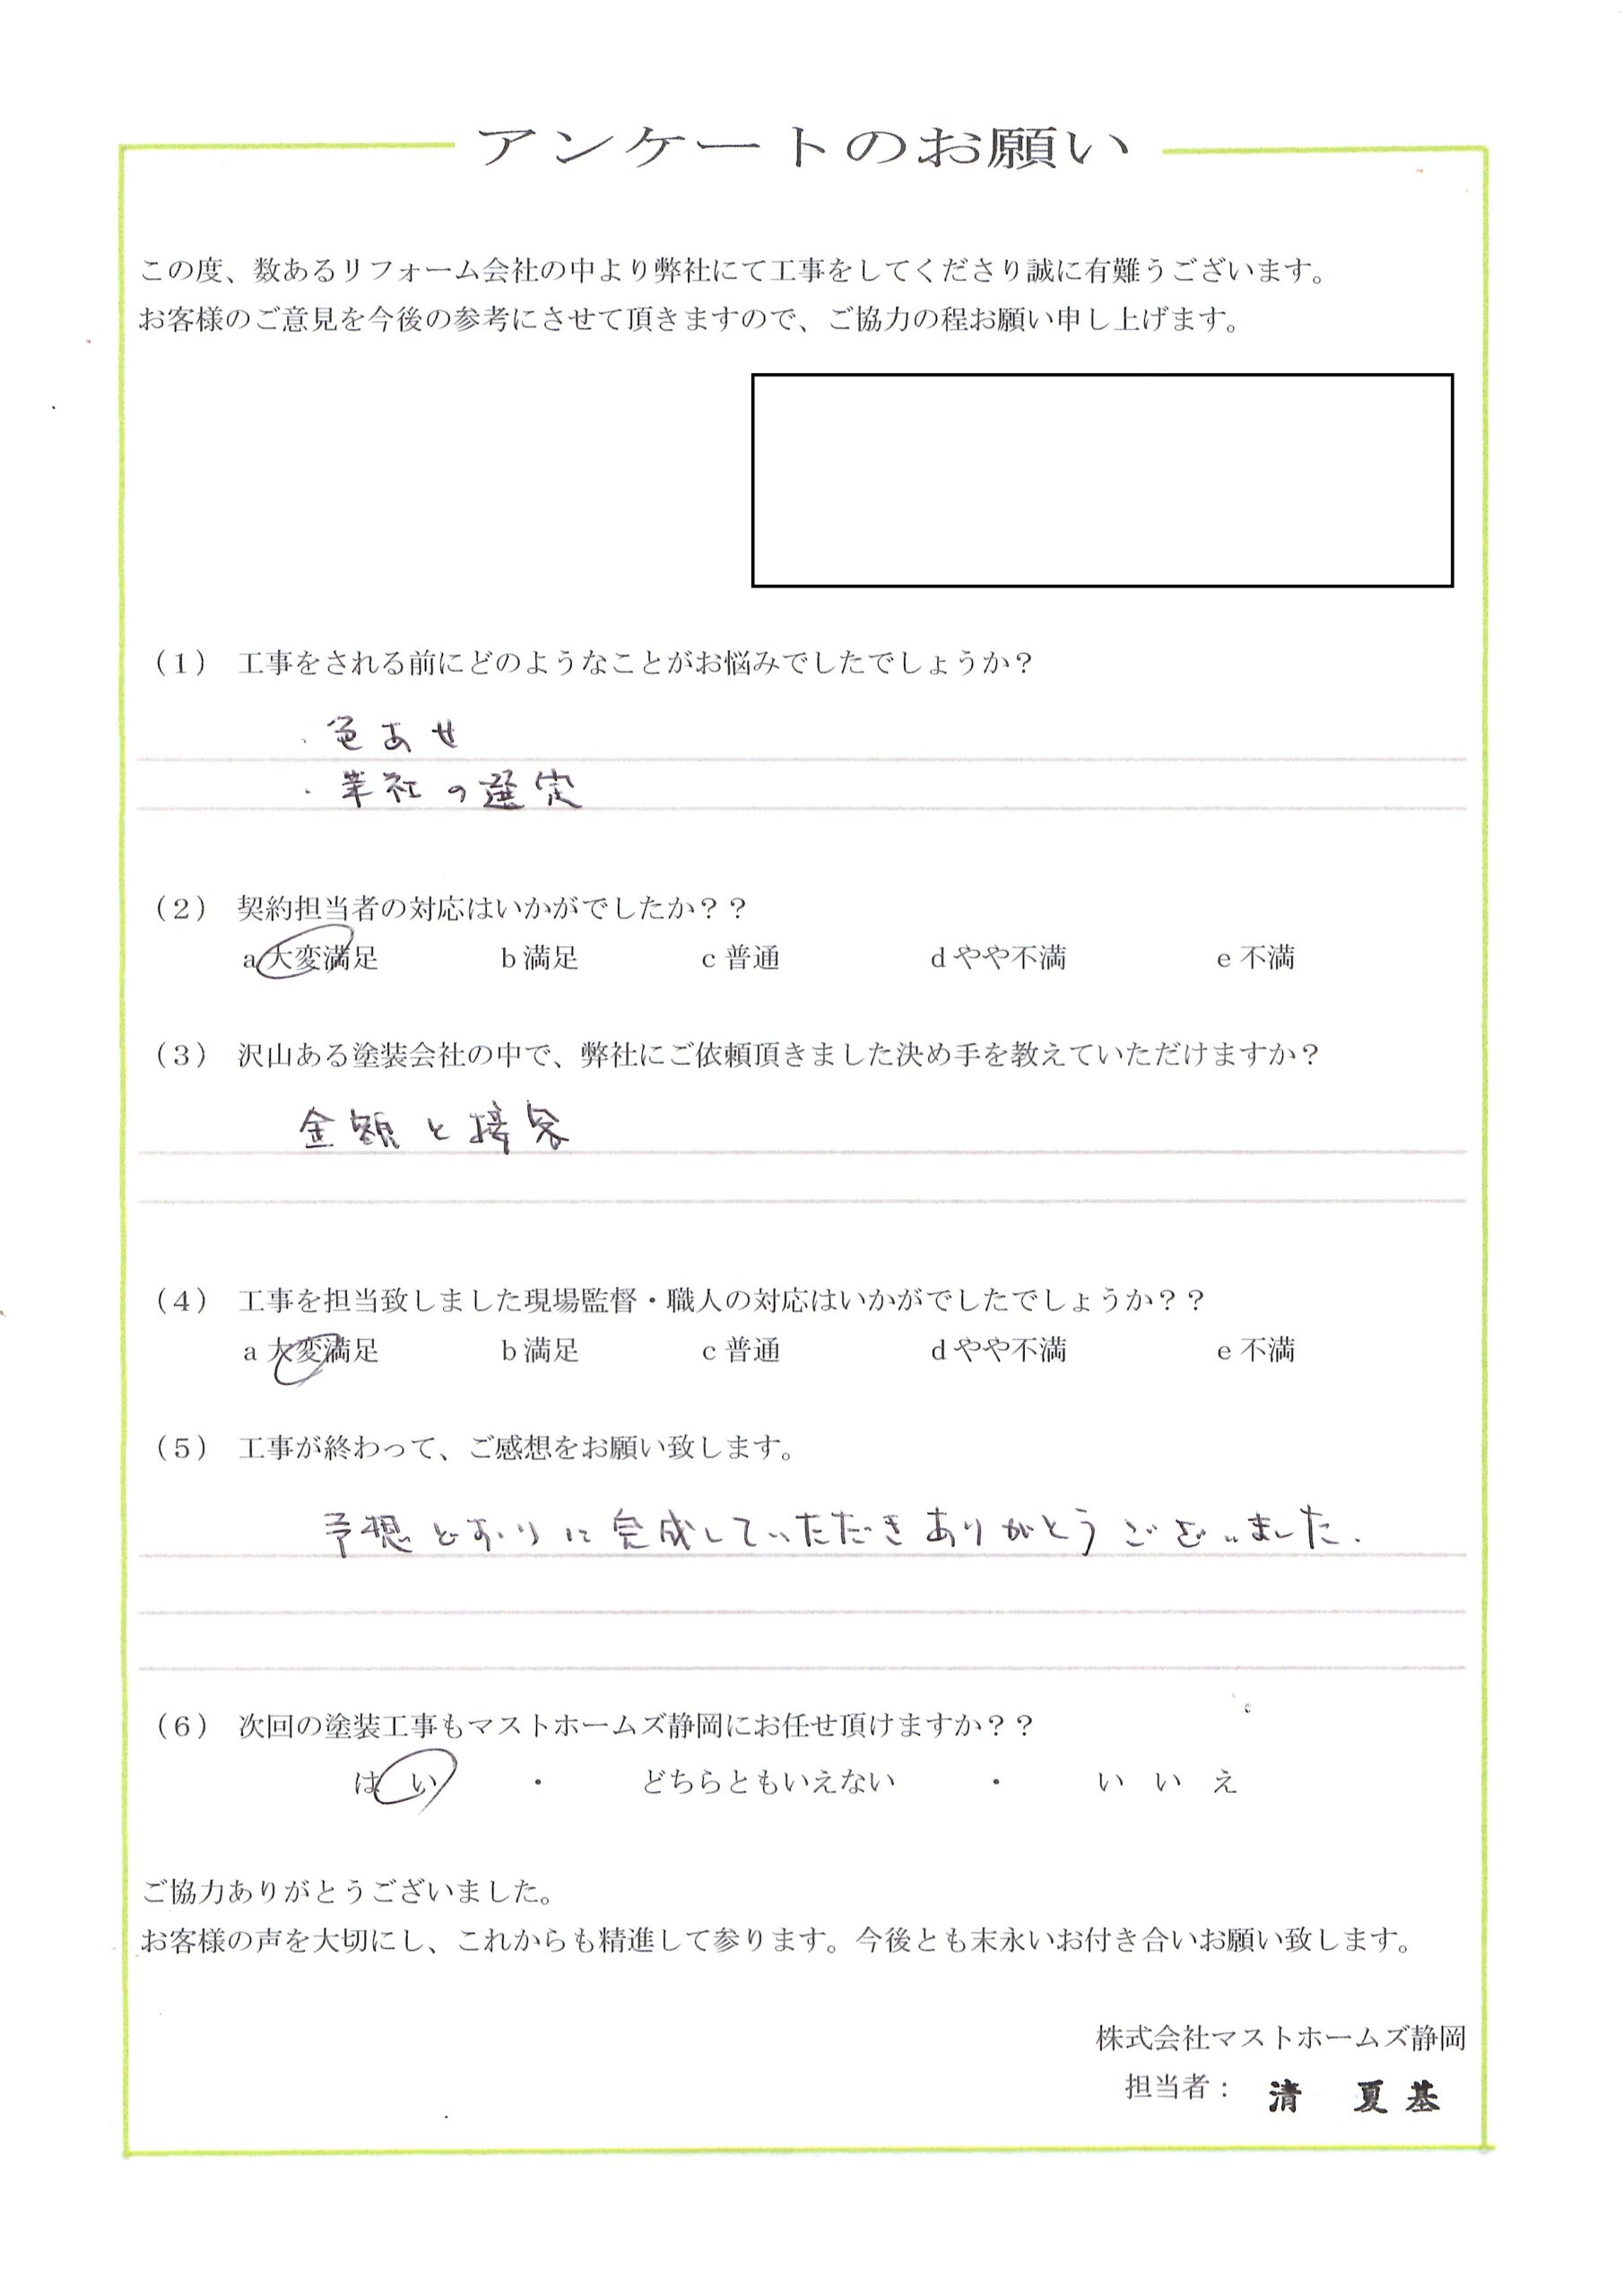 アンケートのお願い
この度、数あるリフォーム会社の中より弊社にて工事をしてくださり誠に有難うございます。
お客様のご意見を今後の参考にさせて頂きますので、ご協力の程お願い申し上げます。
（1） 工事をされる前にどのようなことがお悩みでしたでしょうか？
・色あせ
・業社の選定
（2） 契約担当者の対応はいかがでしたか？？
a 大変満足 b 満足 c 普通 d やや不満 e 不満
（3） 沢山ある塗装会社の中で、弊社にご依頼頂きました決め手を教えていただけますか？
金額と接客
（4） 工事を担当致しました現場監督・職人の対応はいかがでしたでしょうか？？
a 大変満足 b 満足 c 普通 d やや不満 e 不満
（5） 工事が終わって、ご感想をお願い致します。
予想どおりに完成していただきありがとうございました.
（6） 次回の塗装工事もマストホームズ静岡にお任せ頂けますか？？
は い ・ どちらともいえない ・ い い え
ご協力ありがとうございました。
お客様の声を大切にし、これからも精進して参ります。今後とも末永いお付き合いお願い致します。
株式会社マストホームズ静岡
担当者： 清 夏基